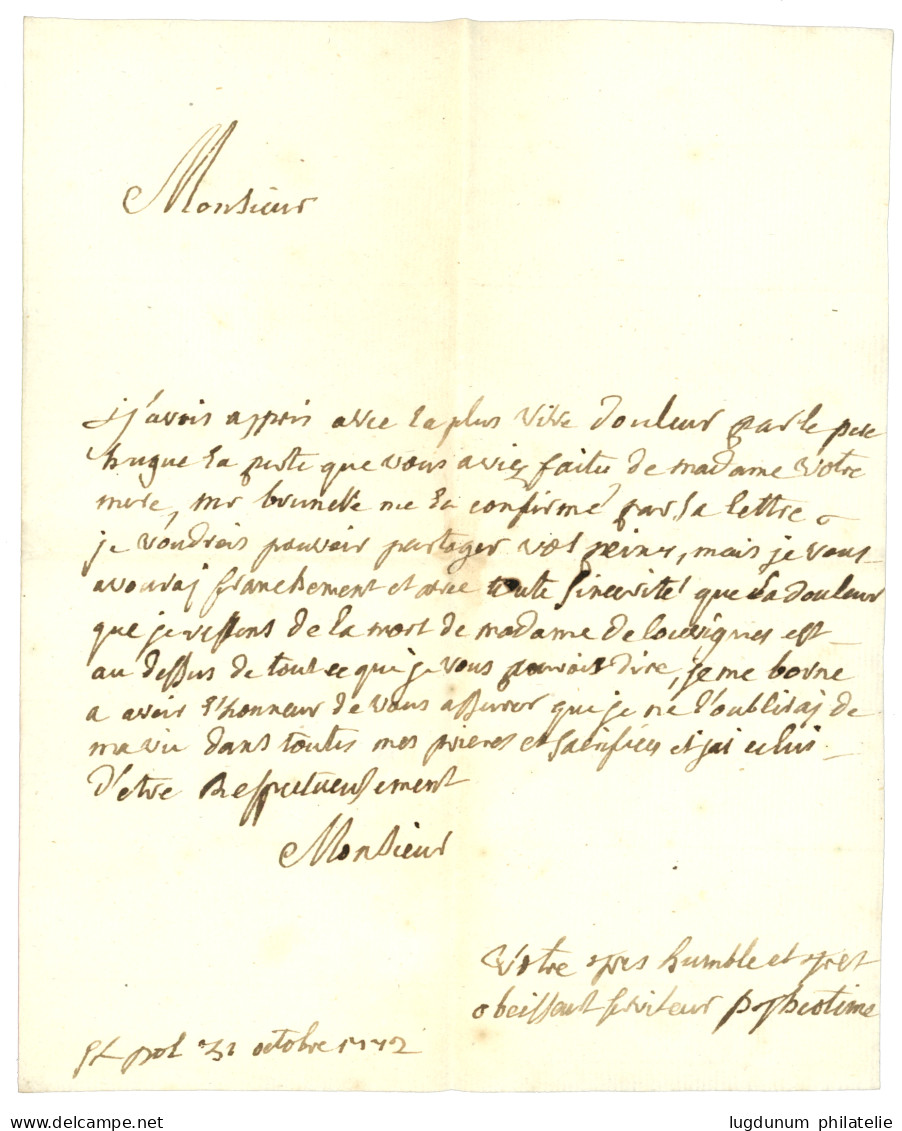 Monsieur
j'avois appris avec la plus vive douleur par le pere
hugue la perte que vous aviez faitte de madame votre
mere, mr brunelle me la confirmé par sa lettre
je voudrois pouvoir partager vos peines, mais je vous
avouraj franchement et avec toute sincerité que la douleur
que je ressens de la mort de madame de louvignies est
au dessus de tout ce que je vous pourois dire, je me borne
a avoir l'honneur de vous assurer que je ne l'oubliraj de
ma vie dans toutes mes prieres et sacrifices et j'ai celuis
d'etre Respectueusement
Monsieur
Votre tres humble et tres
obeissant serviteur p. theotime
St pol 31 octobre 1772
lugdunum philatelie